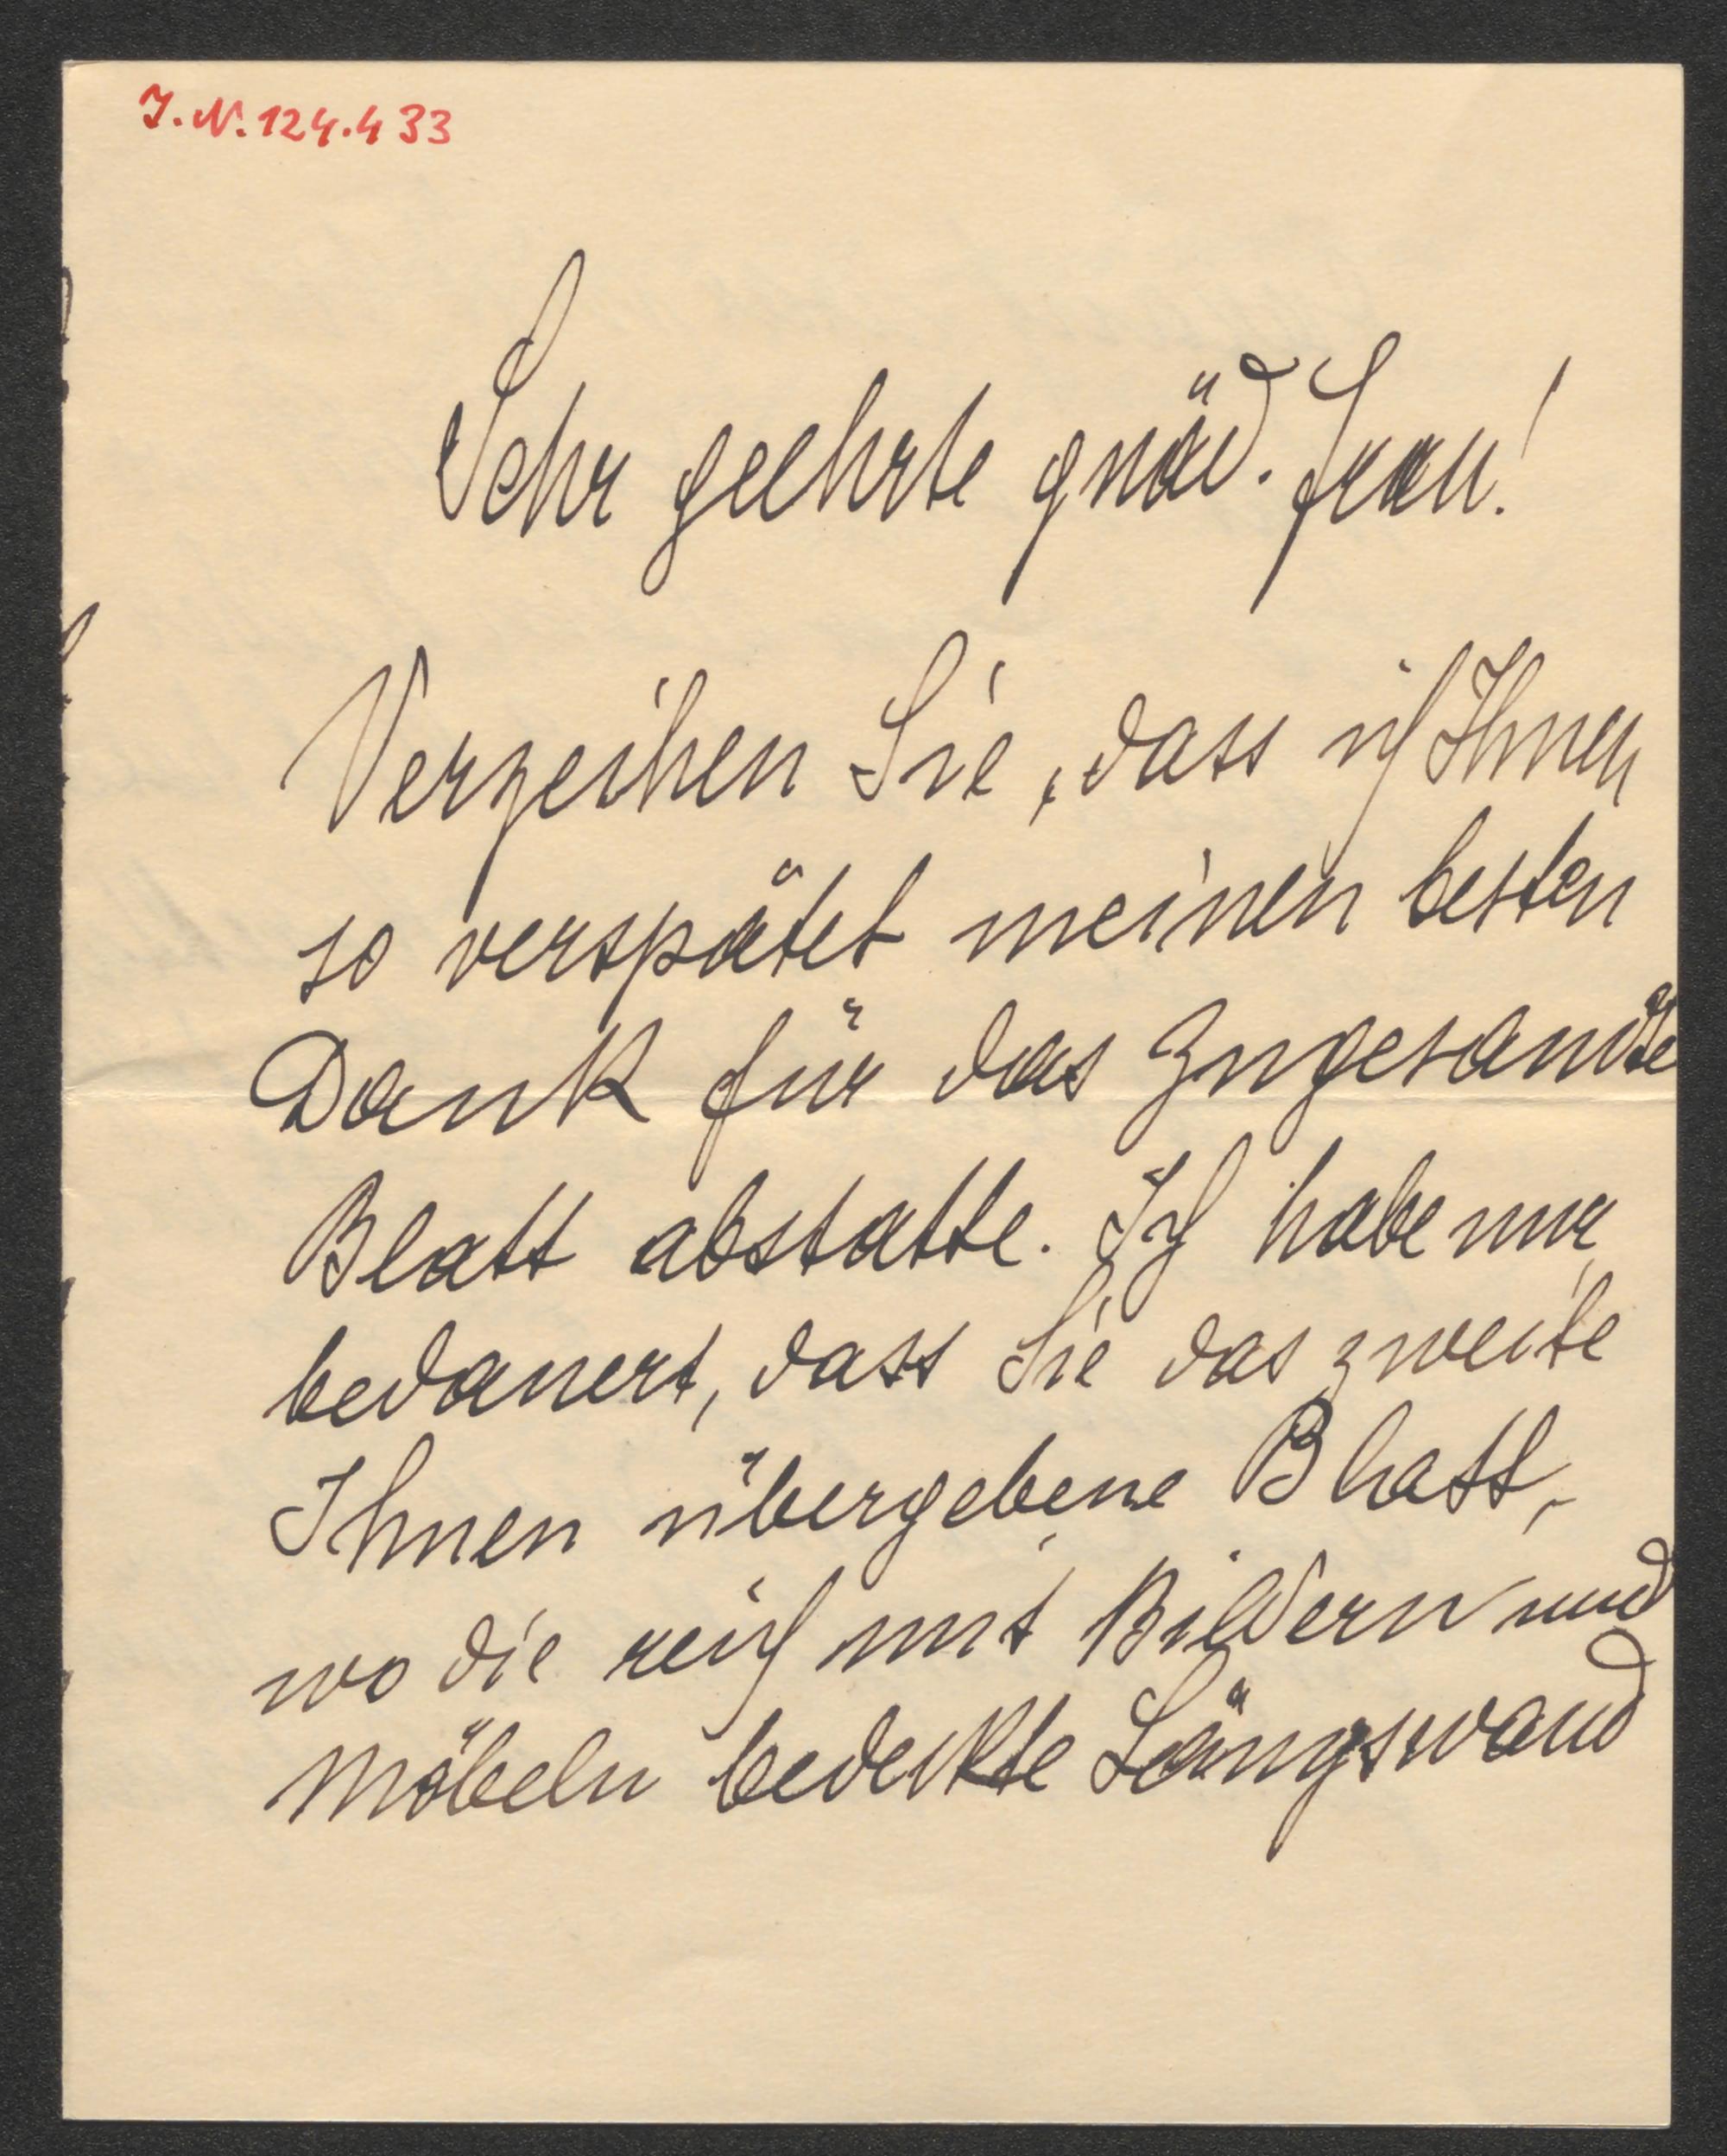 J.N. 124.433
Sehr geehrte gnäd. Frau!
Verzeihen Sie, dass ich Ihnen
so verspätet meinen besten
Dank für das Zugesandte
Blatt abstatte. Ich habe nur
bedauert, dass Sie das zweite
Ihnen übergebene Blatt,
wo die reich mit Bildern und
Möbeln bedeckte Längswand